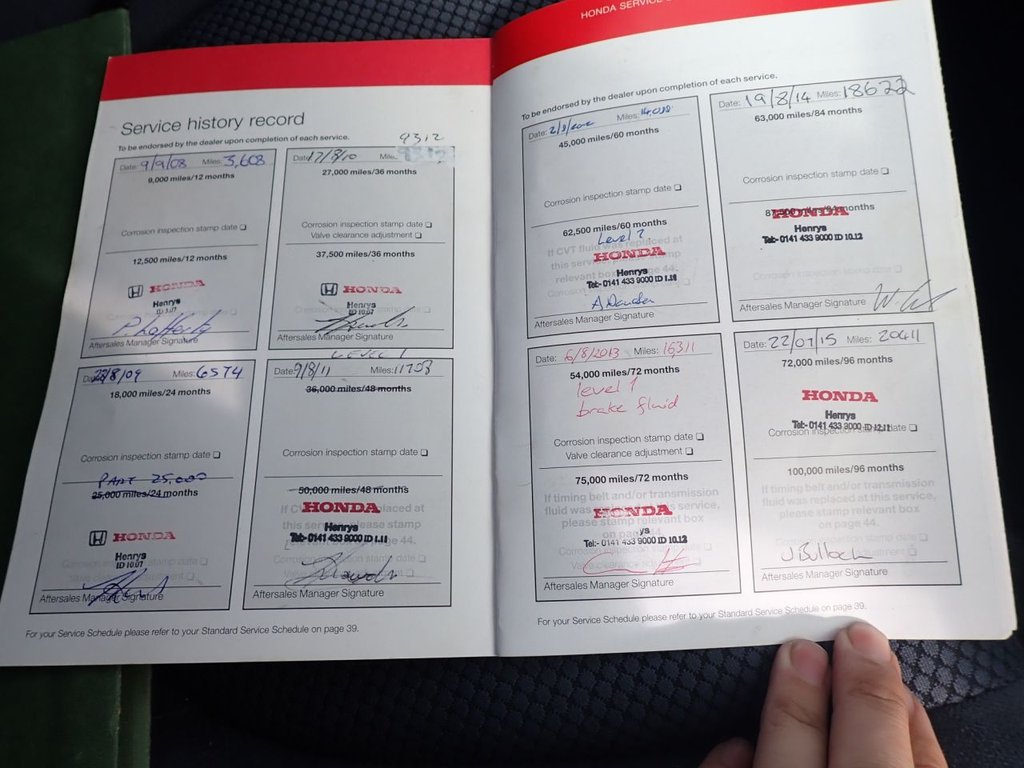 Service history record
To be endorsed by the dealer upon completion of each service.
Date: 9/9/08 Miles: 3,608
9,000 miles/12 months
Corrosion inspection stamp date
12,500 miles/12 months
HONDA
Henrys
P Rafferty
Aftersales Manager Signature
9312
Date: 17/8/10 Miles:
27,000 miles/36 months
Corrosion inspection stamp date
Valve clearance adjustment
37,500 miles/36 months
HONDA
Henrys
ID 10.07
Aftersales Manager Signature
Date: 28/8/09 Miles: 6574
18,000 miles/24 months
Corrosion inspection stamp date
PART 25,000
25,000 miles/24 months
HONDA
Henrys
ID 10.07
Aftersales Manager Signature
LEVEL 1
Date: 9/8/11 Miles: 11703
36,000 miles/48 months
Corrosion inspection stamp date
50,000 miles/48 months
HONDA
Henrys
Tel:- 0141 433 9000 ID 1.11
Aftersales Manager Signature
For your Service Schedule please refer to your Standard Service Schedule on page 39.
HONDA SERVICE
To be endorsed by the dealer upon completion of each service.
Date: Miles:
45,000 miles/60 months
Corrosion inspection stamp date
62,500 miles/60 months
Level 2
HONDA
Henrys
Tel:- 0141 433 9000 ID 1.11
Aftersales Manager Signature
Date: 19/8/14 Miles: 18622
63,000 miles/84 months
Corrosion inspection stamp date
HONDA
Henrys
Tel:- 0141 433 9000 ID 10.12
Aftersales Manager Signature
Date: 6/8/2013 Miles: 16311
54,000 miles/72 months
level 1
brake fluid
Corrosion inspection stamp date
Valve clearance adjustment
75,000 miles/72 months
HONDA
ys
Tel:- 0141 433 9000 ID 10.12
Aftersales Manager Signature
Date: 22/07/15 Miles: 20411
72,000 miles/96 months
HONDA
Henrys
Tel:- 0141 433 9000 ID 12.11
Corrosion inspection stamp date
100,000 miles/96 months
If timing belt and/or transmission
fluid was replaced at this service,
please stamp relevant box
on page 44.
J Bulloch
Aftersales Manager Signature
For your Service Schedule please refer to your Standard Service Schedule on page 39.